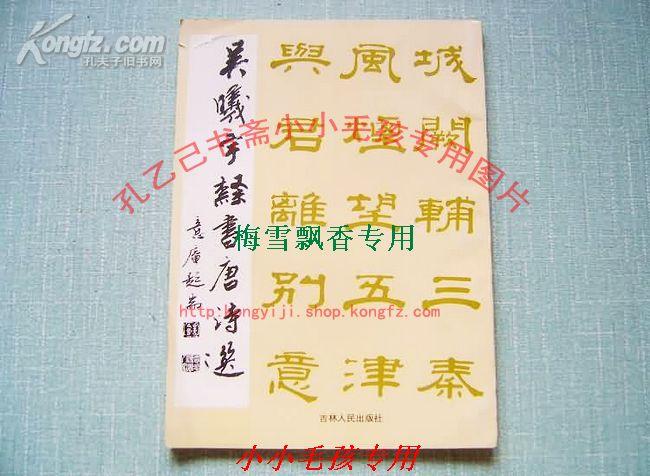 Kongfz.com
孔夫子旧书网
城闕輔三秦
風煙望五津
與君離別意
吴曦宇隸書唐诗選
孔乙己书斋小小毛孩专用图片
梅雪飘香专用
http:kongyiji.shop.kongfz.com/
吉林人民出版社
小小毛孩专用